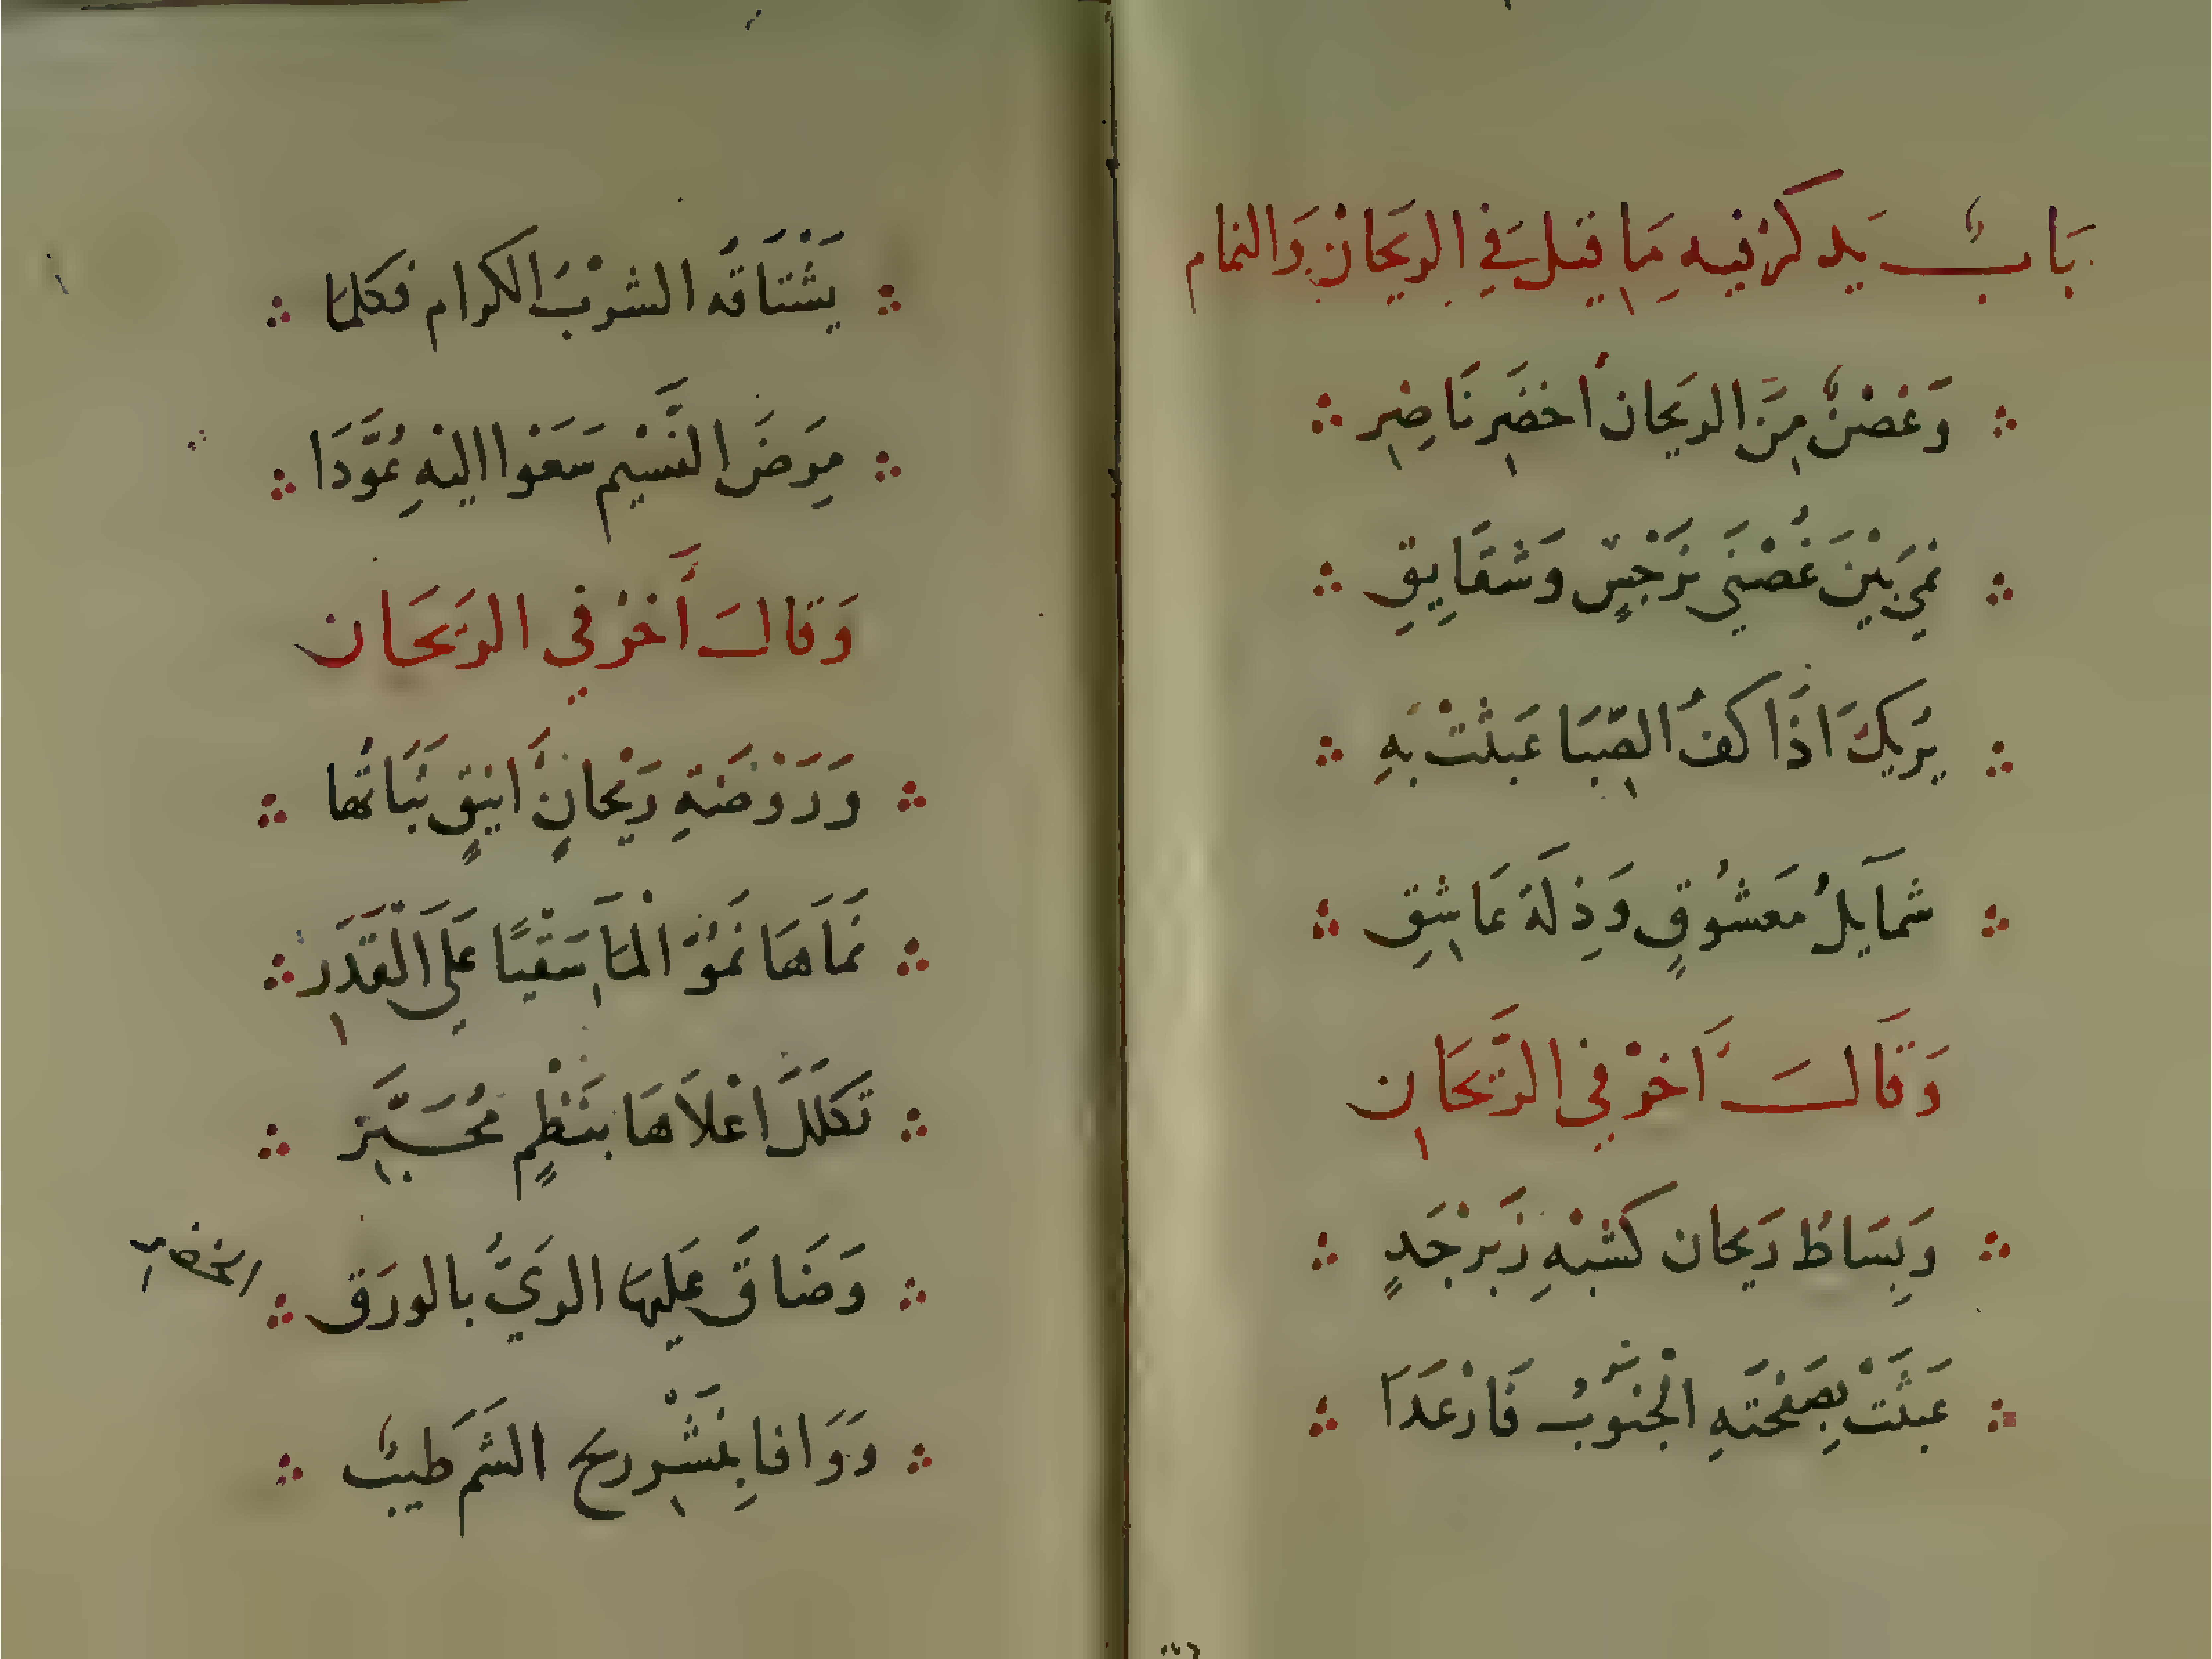 بَابٌ يَذكرُ فيه مَا قيل في الريَحان وَالنمام
وَغصْنٌ مِنَ الريَحان أخضَر نَاضِرِ
نمي بَيْنَ غُصْنَي نَرْجسٍ وَشقَايِقِ
يُرِيكَ اذَا كفُ الصّبَا عَبثَتْ بهِ
شمآيلُ مَعشُوقٍ وَذِلَة عَاشِقِ
وَقَالَ أَخرْ في الرَّيحَان
وَبِسَاطُ رَيحان كشبْهِ زَبرْجَدٍ
عَبثَتْ بِصَفحَتهِ الجْنَوبُ فَارْعَدَا
يَشْتَاقَهُ الشرْبَ الكرَام فكلمَا
مرِضَ النَسْيم سَعَوْا اليْهِ عُوَّدَا
وَقالَ أَخرْ في الريَحَان
وَرَوْضَةِ رَيْحانٍ أنيقٍ نَبَاتُها
نَمَاهَا نمُوَّ الْمَا سَقيًا عَلَى الْقَدَر
تكلَل اعْلاَهَا بنَظْمٍ مُحَبَّرِ
وَضَاقَ عَليهَا الريَّ بالورَق
الخضرِ
وَوَافا بِنَشْرِ ريح الشَم طيبٌ